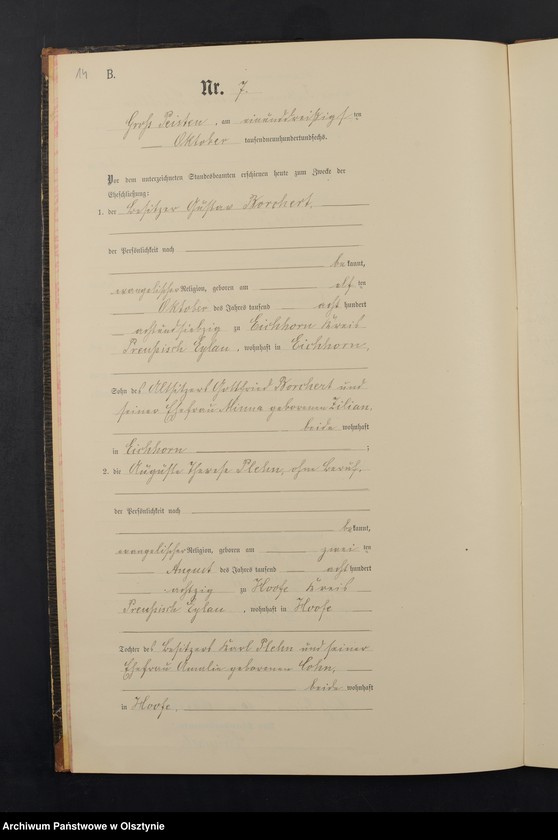 14
B.
Nr. 7.
Groß Peisten, am einunddreißigsten
Oktober tausendneunhundertundsechs.
Vor dem unterzeichneten Standesbeamten erschienen heute zum Zwecke der
Eheschließung:
1. der Besitzer Gustav Borchert,
der Persönlichkeit nach
bekannt,
evangelischer Religion, geboren am elften
Oktober des Jahres tausend acht hundert
achtundsiebzig zu Eichhorn Kreis
Preußisch Eylau, wohnhaft in Eichhorn,
Sohn des Altsitzers Gottfried Borchert und
seiner Ehefrau Minna geborenen Zilian,
beide wohnhaft
in Eichhorn ;
2. die Auguste Therese Plehn, ohne Beruf,
der Persönlichkeit nach
bekannt,
evangelischer Religion, geboren am zweiten
August des Jahres tausend acht hundert
achtzig zu Hoofe Kreis
Preußisch Eylau, wohnhaft in Hoofe
Tochter des Besitzers Karl Plehn und seiner
Ehefrau Amalie geborenen Cohn,
beide wohnhaft
in Hoofe.
Archiwum Państwowe w Olsztynie